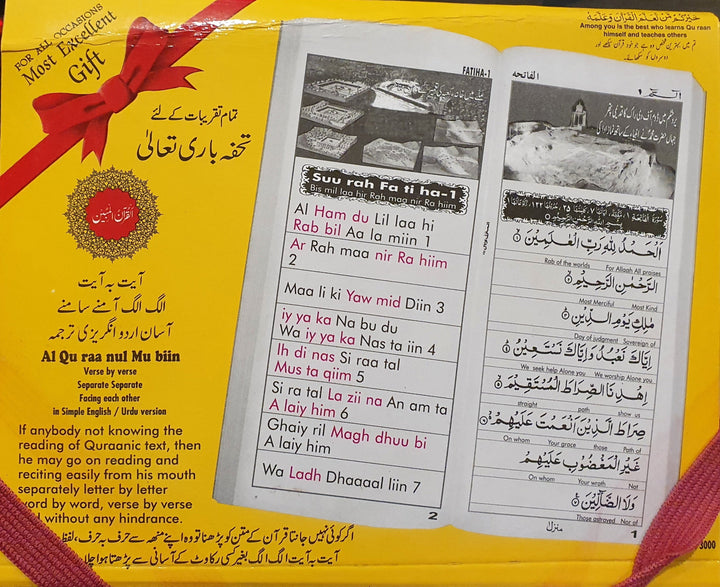 FOR ALL OCCASIONS
Most Excellent
Gift
تمام تقریبات کے لئے
تحفہ باری تعالیٰ
القرآن المبین
آیت بہ آیت
الگ الگ آمنے سامنے
آسان اردو انگریزی ترجمہ
Al Qu raa nul Mu biin
Verse by verse
Separate Separate
Facing each other
in Simple English / Urdu version
If anybody not knowing the
reading of Quraanic text, then
he may go on reading and
reciting easily from his mouth
separately letter by letter
word by word, verse by verse
without any hindrance.
خیرکم من تعلم القرآن وعلمہ
Among you is the best who learns Qu raan
himself and teaches others
تم میں بہترین شخص وہ ہے جو خود قرآن سیکھے اور
دوسروں کو سکھائے۔
FATIHA-1
Suu rah Fa ti ha-1
Bis mil laa hir Rah maa nir Ra hiim
Al Ham du Lil laa hi
Rab bil Aa la miin 1
Ar Rah maa nir Ra hiim
2
Maa li ki Yaw mid Diin 3
iy ya ka Na bu du
Wa iy ya ka Nas ta iin 4
Ih di nas Si raa tal
Mus ta qiim 5
Si ra tal La zii na An am ta
A laiy him 6
Ghaiy ril Magh dhuu bi
A laiy him
Wa Ladh Dhaaaal liin 7
2
الفاتحہ
اَلْحَمْدُ لِلّٰهِ رَبِّ الْعٰلَمِيْنَ
Rab of the worlds For Allaah All praises
الرَّحْمٰنِ الرَّحِيْمِ
Most Merciful Most Kind
مٰلِكِ يَوْمِ الدِّيْنِ
Day of judgment Sovereign of
اِيَّاكَ نَعْبُدُ وَاِيَّاكَ نَسْتَعِيْنُ
We seek help Alone you We worship Alone you
اِهْدِنَا الصِّرَاطَ الْمُسْتَقِيْمَ
straight path show us
صِرَاطَ الَّذِيْنَ اَنْعَمْتَ عَلَيْهِمْ
On whom Your grace those Path of
غَيْرِ الْمَغْضُوْبِ عَلَيْهِمْ
On whom Your wrath Not
وَلَا الضَّآلِّيْنَ
Those astrayed Nor of
منزل
1
اگر کوئی نہیں جانتا قرآن کے متن کو پڑھنا تو وہ اپنے منھ سے حرف بہ حرف، لفظ
آیت بہ آیت الگ الگ بغیر کسی رکاوٹ کے آسانی سے پڑھتا ہوا چلا
3000